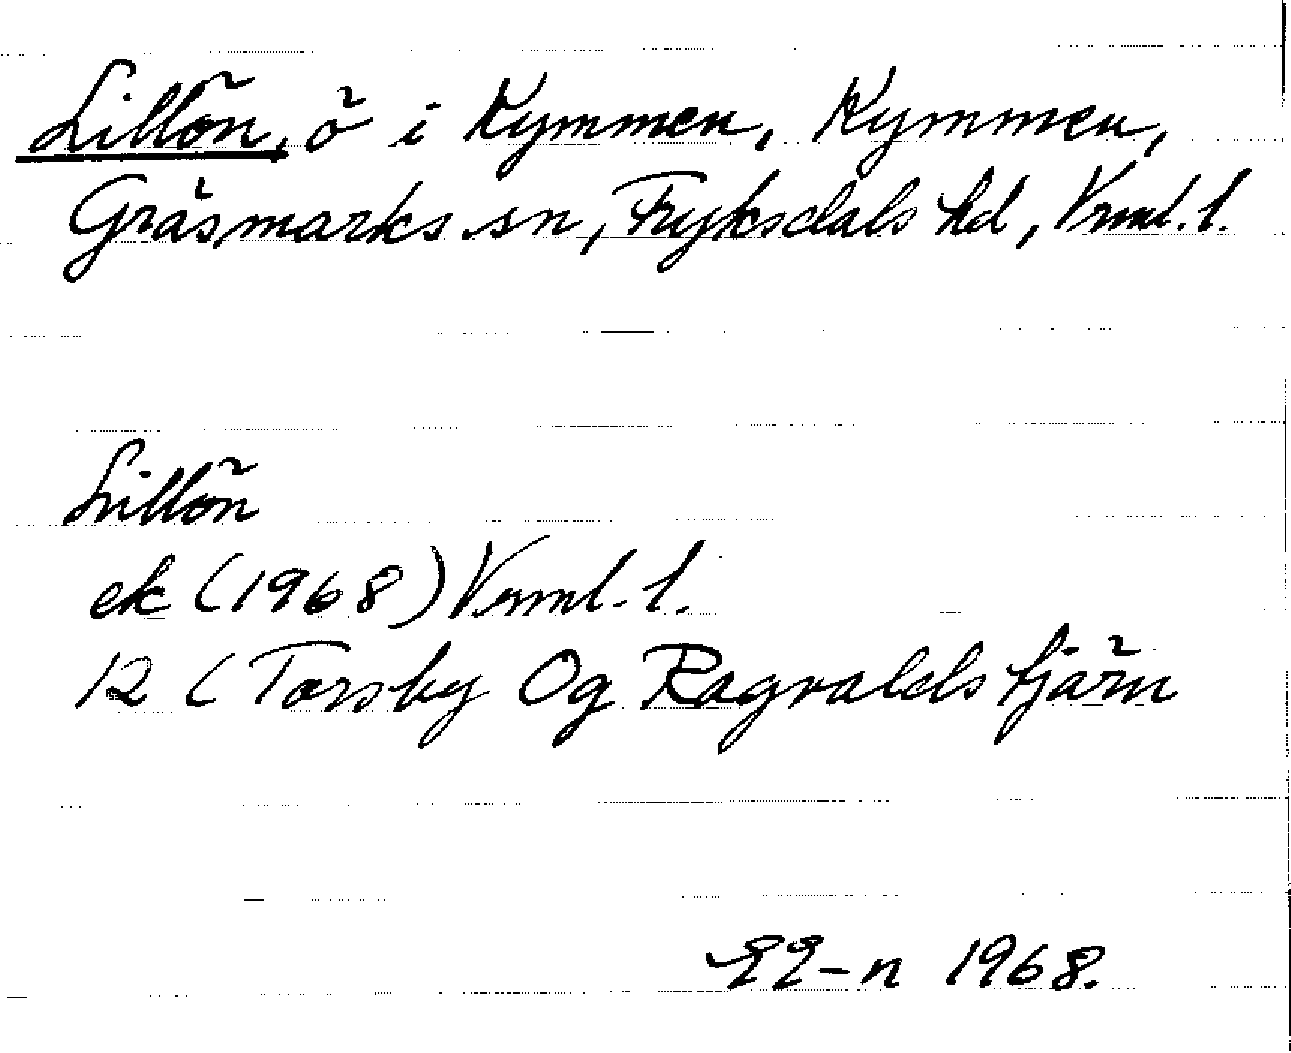 Lillön, ö i Kymmen, Kymmen,
Gräsmarks sn, Fryksdals hd, Vrml. l.
Lillön
ek (1968) Vrml. l.
12 C Torsby Og Ragvaldstjärn
EE-n 1968.